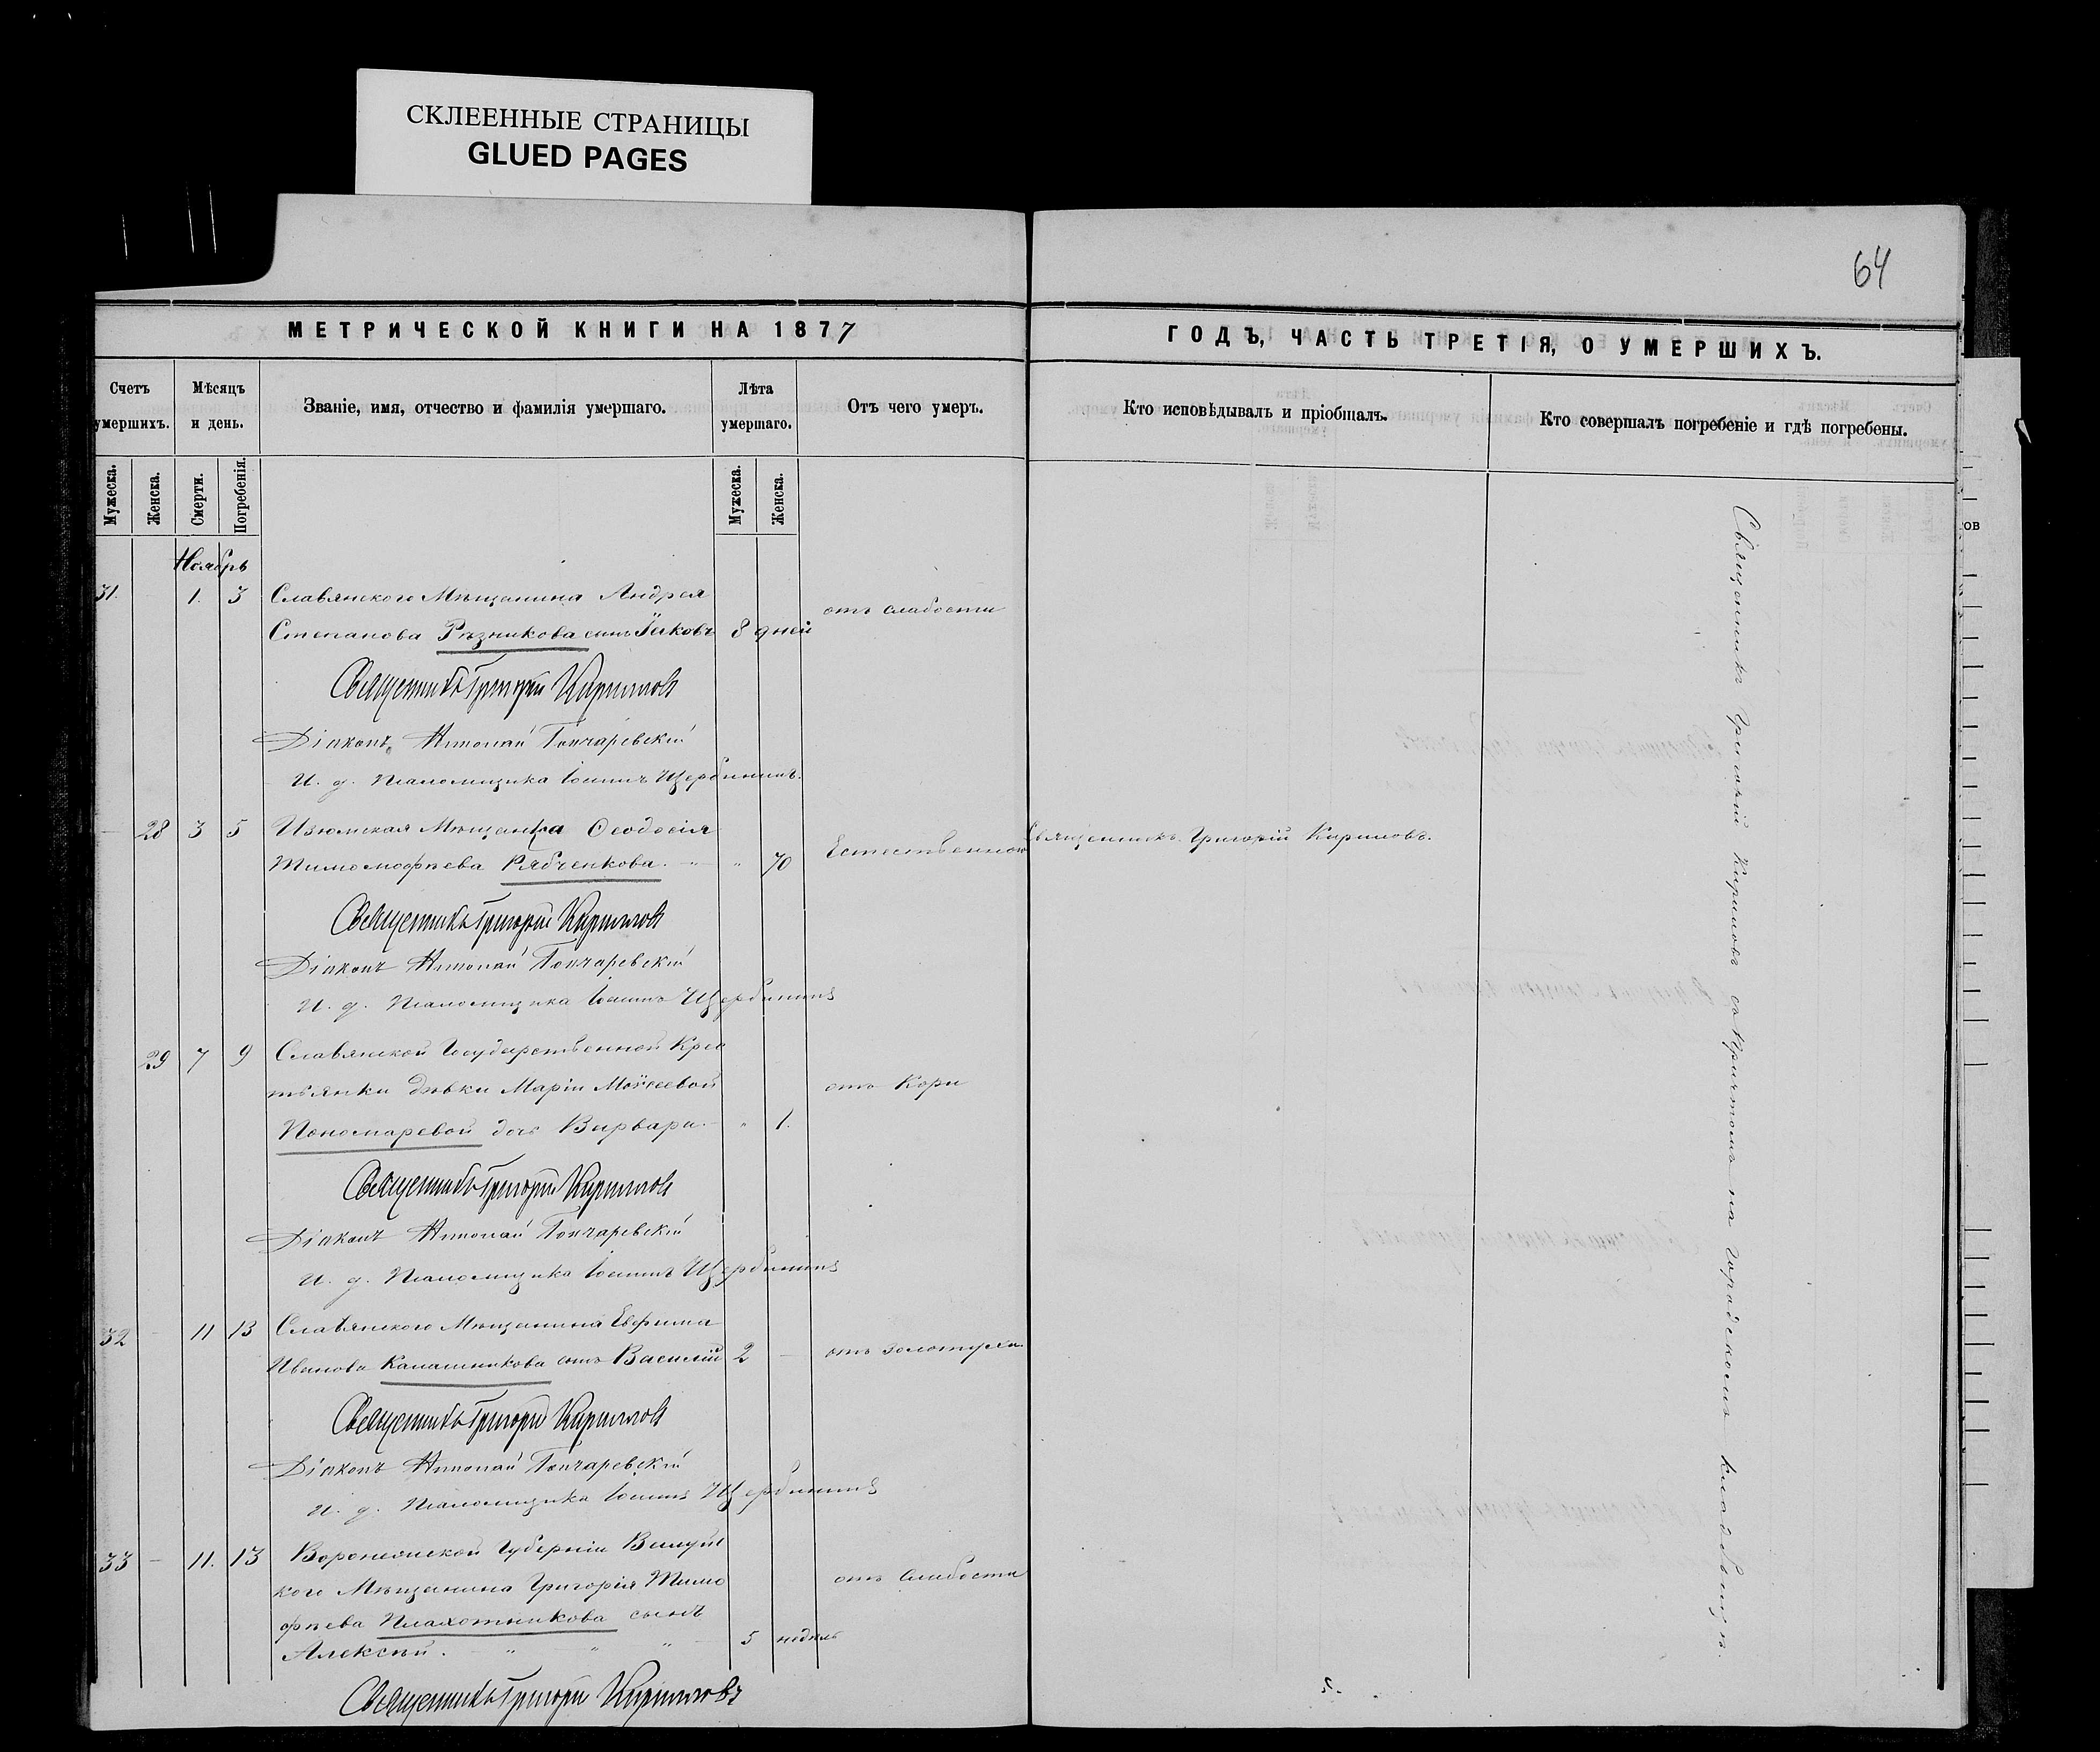 СКЛЕЕННЫЕ СТРАНИЦЫ
GLUED PAGES
64
МЕТРИЧЕСКОЙ КНИГИ НА 1877
ГОДЪ, ЧАСТЬ ТРЕТІЯ, О УМЕРШИХЪ.
Счетъ умершихъ.
Мѣсяцъ и день.
Званіе, имя, отчество и фамилія умершаго.
Лѣта умершаго.
Отъ чего умеръ.
Кто исповѣдывалъ и пріобщалъ.
Кто совершалъ погребеніе и гдѣ погребены.
Мужеска.
Женска.
Смерти.
Погребенія.
Мужеска.
Женска.
Ноябрь
31. 1. 3 Славянскаго Мѣщанина Андрея
Степанова Рѣзникова сынъ Іаковъ 8 дней
отъ слабости
Священникъ Григорій Кириловъ
Діаконъ Николай Гончаревскій
И. д. Псаломщика Іоаннъ Щербининъ.
28 3 5 Изюмская Мѣщанка Ѳеодосія
Тимоѳеева Рябченкова. " 70
Естественною
Священникъ Григорій Кириловъ.
Священникъ Григорій Кириловъ
Діаконъ Николай Гончаревскій
И. д. Псаломщика Іоаннъ Щербининъ
29 7 9 Славянской Государственной Крес
тьянки дѣвки Маріи Моѵсеевой
Пономаревой дочь Варвара. " 1.
отъ Кори
Священникъ Григорій Кириловъ
Діаконъ Николай Гончаревскій
И. д. Псаломщика Іоаннъ Щербининъ
32 - 11 13 Славянскаго Мѣщанина Евфима
Иванова Калашникова сынъ Василій 2 -
отъ золотухи
Священникъ Григорій Кириловъ
Діаконъ Николай Гончаревскій
И. д. Псаломщика Іоаннъ Щербининъ
33 - 11. 13 Воронежской Губерніи Валуйс
кого Мѣщанина Григорія Тимо
фѣева Плахотникова сынъ
Алексѣй. " " " 5 недѣль
отъ слабости
Священникъ Григорій Кириловъ
Священникъ Григорій Кириловъ съ Причтомъ на городскомъ кладбищѣ.
ов